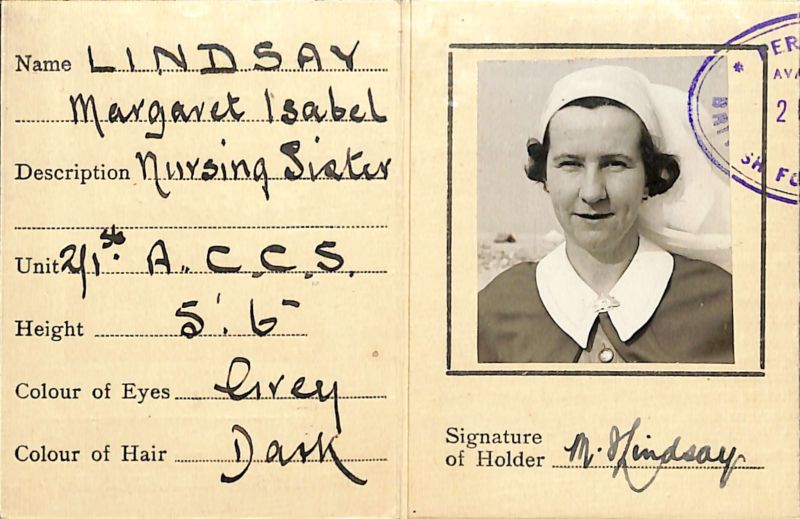 Name LINDSAY
Margaret Isabel
Description Nursing Sister
Unit 2/1st. A.. C.C.S.
Height 5'. 6"
Colour of Eyes Grey
Colour of Hair Dark
* PER
AVA
2
SH FO
Signature
of Holder M. I Lindsay